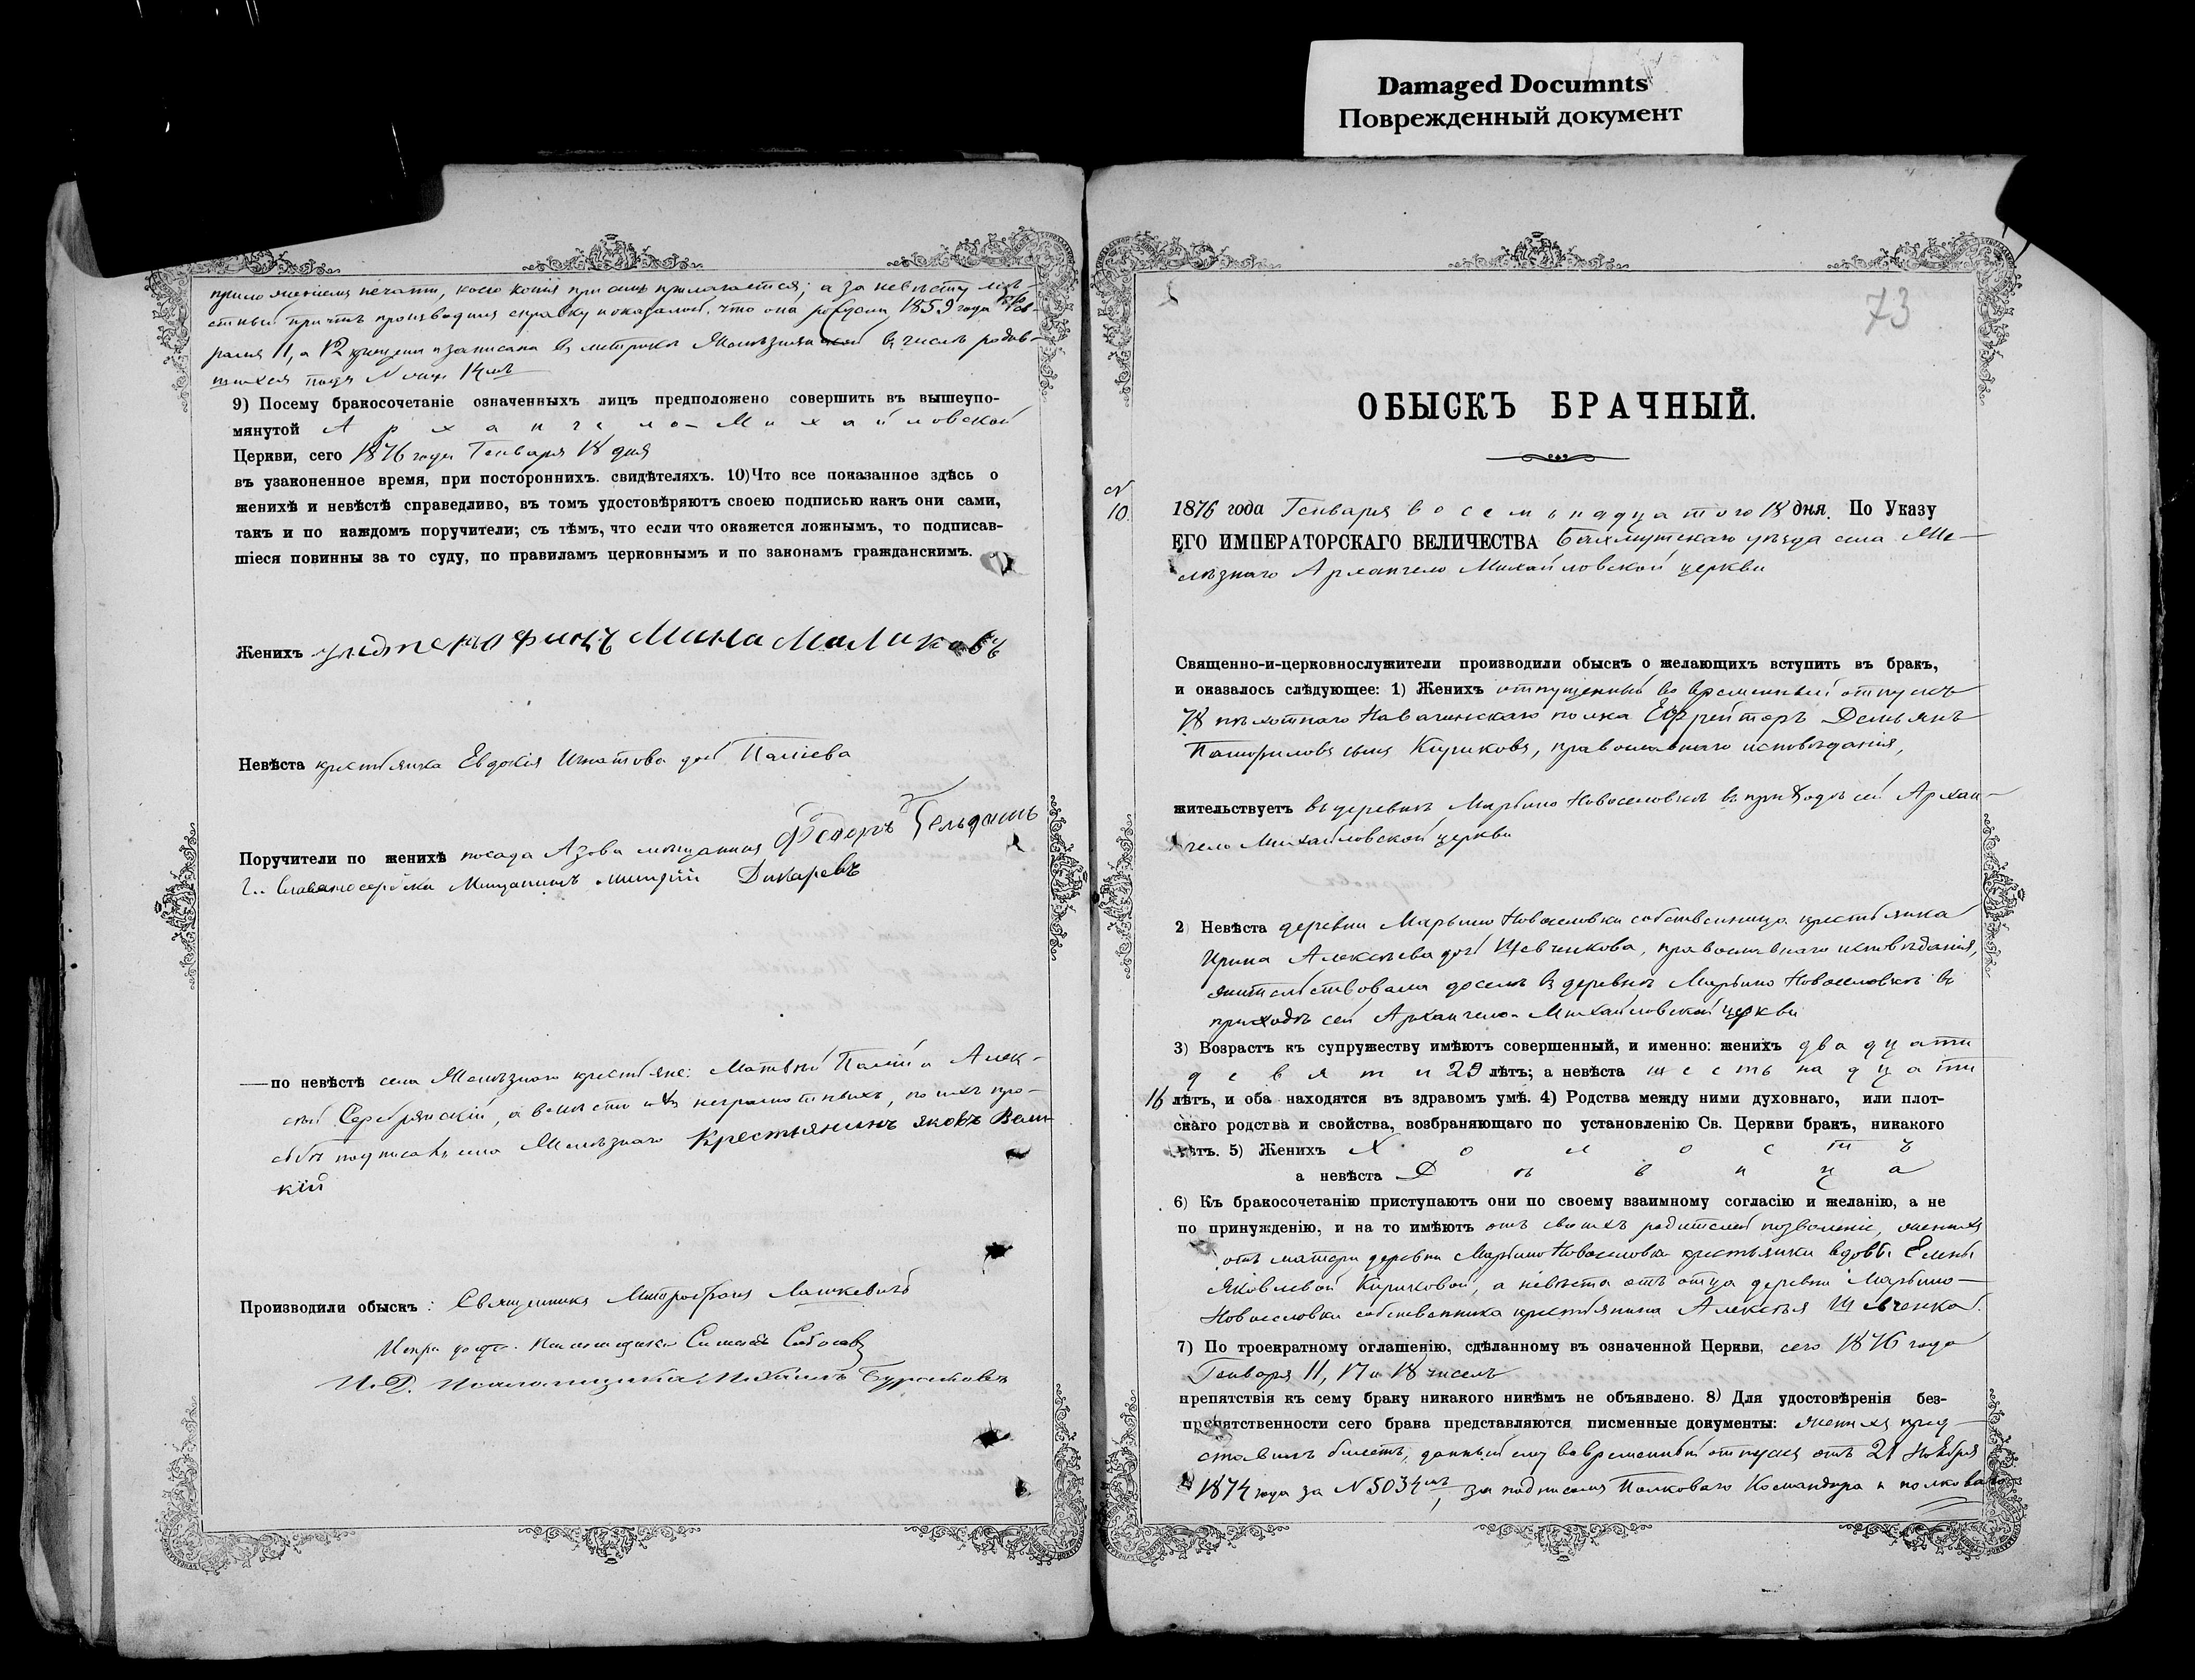 Damaged Documnts
Поврежденный документ
приложеніемъ печати, коего копія при семъ прилагается; а за невѣсту мѣ-
стный причтъ производилъ справку и оказалось, что она родилась 1859 года Фев-
раля 11, а 12 крещена и записана въ метрикѣ Желѣзнянской въ числѣ родив-
шихся подъ № 14мъ
9) Посему бракосочетаніе означенныхъ лицъ предположено совершить въ вышеупо-
мянутой Архангело-Михайловской
Церкви, сего 1876 года Генваря 18 дня
въ узаконенное время, при постороннихъ. свидѣтеляхъ. 10)Что все показанное здѣсь о
женихѣ и невѣстѣ справедливо, въ томъ удостовѣряютъ своею подписью какъ они сами,
такъ и по каждомъ поручители; съ тѣмъ, что если что окажется ложнымъ, то подписав-
шіеся повинны за то суду, по правиламъ церковнымъ и по законамъ гражданскимъ.
Женихъ Мина Маликовъ
Невѣста крестьянка Евдокія Игнатова дочь Паліева
Поручители по женихѣ посада Азова мещанинъ Федоръ
Славяносербска Мещанинъ Дикаревъ
—по невѣстѣ села Желѣзнаго крестьяне: Матвѣй Палій и Алек-
сѣй Серебрянскій, а вмѣсто ихъ неграмотныхъ, по ихъ про-
сьбѣ подписалъ села Желѣзнаго Крестьянинъ Яковъ Вели-
кій
Производили обыскъ: Священникъ Митрофанъ Лашкевичъ
Псаломщикъ
И. Д. Псаломщика Михаилъ
73
ОБЫСКЪ БРАЧНЫЙ.
№
10.
1876 года Генваря восемьнадцатого 18 дня. По Указу
ЕГО ИМПЕРАТОРСКАГО ВЕЛИЧЕСТВА Бахмутскаго уѣзда села Же-
лѣзнаго Архангело Михайловской церкви
Священно-и-церковнослужители производили обыскъ о желающихъ вступить въ бракъ,
и оказалось слѣдующее: 1) Женихъ отпущенный во временный отпускъ
78 пѣхотнаго Навагинскаго полка Ефрейторъ Демьянъ
Памфиловъ сынъ Кириковъ, православнаго исповѣданія,
жительствуетъ въ деревнѣ Марьино Новоселовкѣ въ приходѣ сей Архан-
гело Михайловской церкви
2) Невѣста деревни Марьино Новоселовки собственница крестьянка
Ирина Алексѣева дочь Шевченкова, православнаго исповѣданія,
жительствовала доселѣ въ деревнѣ Марьино Новоселовкѣ въ
приходѣ сей Архангело-Михайловской церкви
3) Возрастъ къ супружеству имѣютъ совершенный, и именно: женихъ двадцати
девяти 29 лѣтъ; а невѣста шестьнадцати
16 лѣтъ, и оба находятся въ здравомъ умѣ. 4) Родства между ними духовнаго, или плот-
скаго родства и свойства, возбраняющаго по установленію Св. Церкви бракъ, никакого
нѣтъ. 5) Женихъ Холостъ
а невѣста Дѣвица
6) Къ бракосочетанію приступаютъ они по своему взаимному согласію и желанію, а не
по принужденію, и на то имѣютъ отъ своихъ родителей позволеніе, женихъ
отъ матери деревни Марьино Новоселовки крестьянки вдовы Елены
Яковлевой Кириковой, а невѣста отъ отца деревни Марьино—
Новоселовки собственника крестьянина Алексѣя Шевченка.
7) По троекратному оглашенію, сдѣланному въ означенной Церкви, сего 1876 года
Генваря 11, 17 и 18 чиселъ
препятствія къ сему браку никакого никѣмъ не объявлено. 8) Для удостовѣренія без-
препятственности сего брака представляются писменные документы: женихъ пред-
ставилъ билетъ, данный ему во временный отпускъ отъ 21 Ноября
1874 года за №5034мъ, за подписомъ Полковаго Командира и полковаго